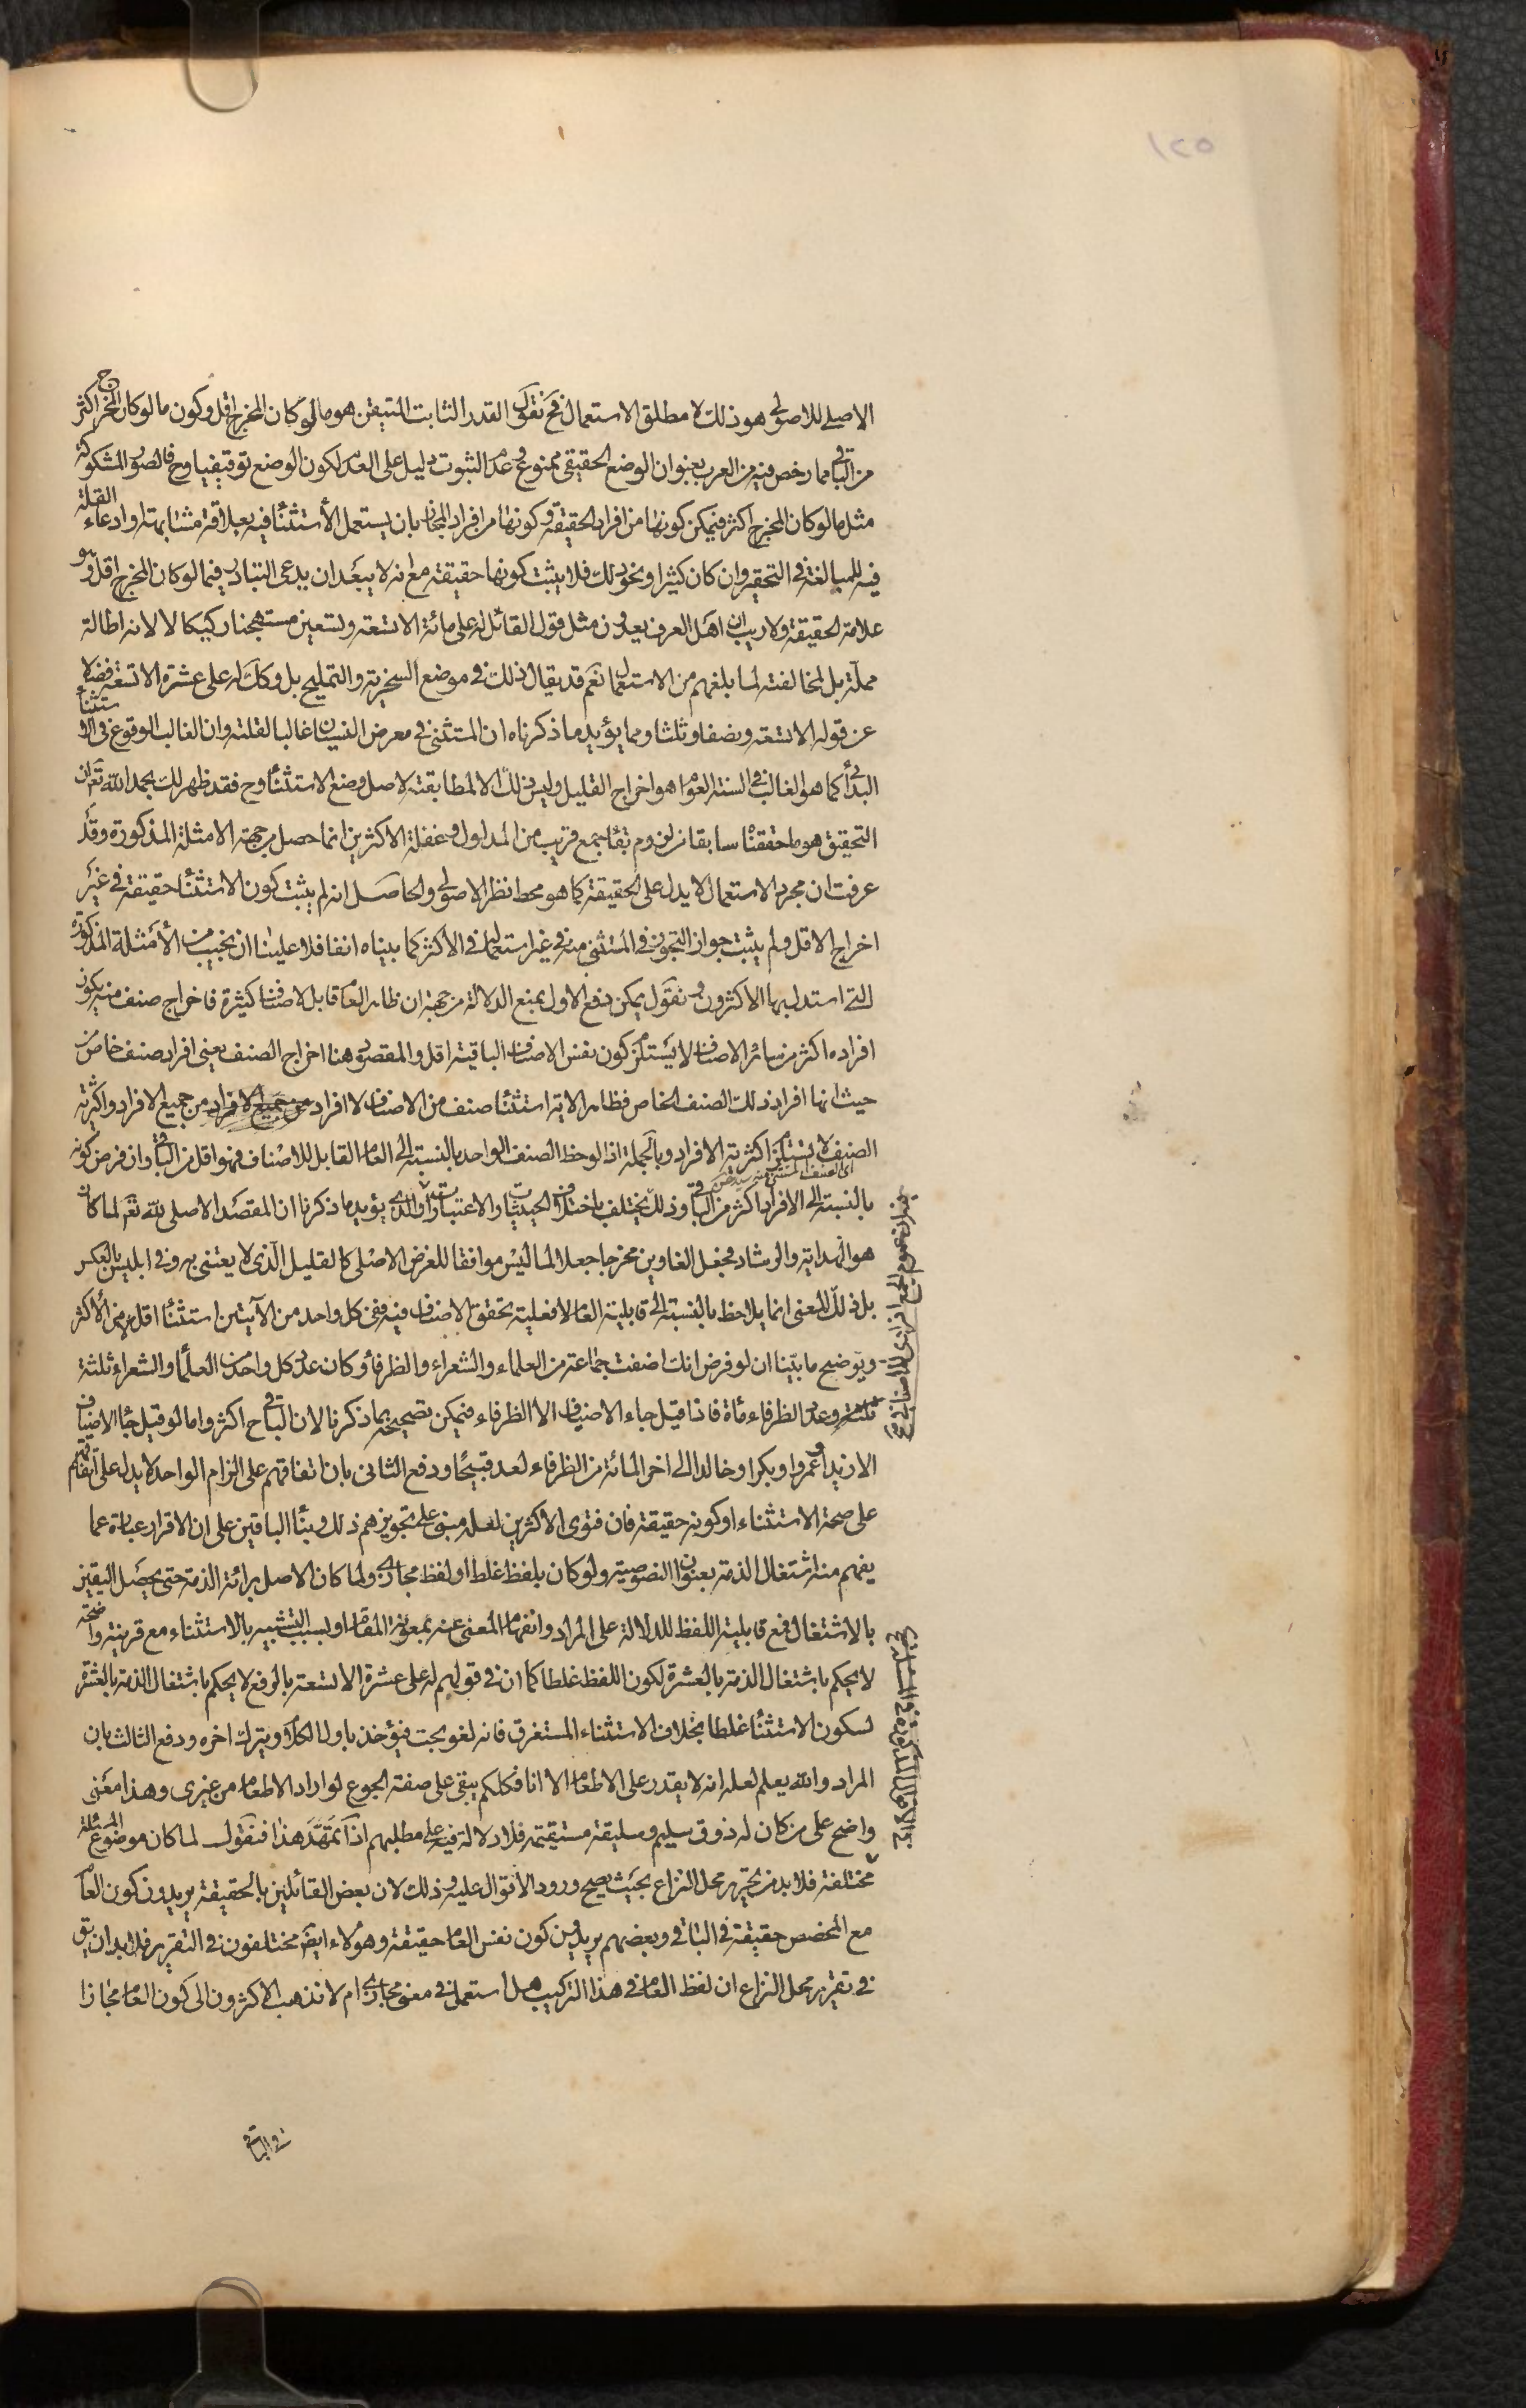 ١٢٥
الاصلى للاصولى هو ذلك لا مطلق الاستعمال فح نقول القدر الثابت المتيقن هو ما لو كان المخرج اقل وكون ما لو كان المخرج اكثر
من الباقى مما رخص فيه من العرب بعنوان الوضع الحقيقى ممنوع وعدم الثبوت دليل على العدم لكون الوضع توقيفيا وح فالصور المشكوكة
مثل ما لو كان المخرج اكثر فيمكن كونها من افراد الحقيقة وكونها من افراد المجاز بان يستعمل الاستثناء فيه بعلاقة مشابهته او ادعاء القلة
فيه للمبالغة فى التحقير وان كان كثيرا ونحو ذلك فلا يثبت كونها حقيقة مع انه لا يبعد ان يدعى التبادر فيما لو كان المخرج اقل وهو
علامة الحقيقة ولا ريب ان اهل العرف يعدون مثل قول القائل له على مائة الا تسعة وتسعين مستهجنا ركيكا لا لانه اطالة
مملة بل لمخالفته لما بلغهم من الاستعمال نعم قد يقال ذلك فى موضع السخرية والتمليح بل وكك له على عشرة الا تسعة فضلا
عن قوله الا تسعة ونصفا وثلثا ومما يؤيد ما ذكرناه ان المستثنى فى معرض النسيان غالبا لقلته وان الغالب الوقوع فى الاستثناء
البدائى كما هو الغالب فى السنة العوام هو اخراج القليل وليس ذلك الا لمطابقته لاصل وضع الاستثناء وح فقد ظهر لك بحمد الله تعالى ان
التحقيق هو ما حققناه سابقا من لزوم بقاء جمع قريب من المدلول وغفلة الاكثرين انما حصل من جهة الامثلة المذكورة وقد
عرفت ان مجرد الاستعمال لا يدل على الحقيقة كما هو محط نظر الاصولى والحاصل انه لم يثبت كون الاستثناء حقيقة فى غير
اخراج الاقل ولم يثبت جواز التجوز فى المستثنى منه فى غير استعماله فى الاكثر كما بيناه انفا فلا علينا ان نجيب من الأمثلة المذكورة
التى استدل بها الاكثرون ونقول يمكن دفع الاول بمنع الدلالة من جهة ان ظاهر العام قابل لاصناف كثيرة فاخراج صنف منه يكون
افراده اكثر من سائر الاصناف لا يستلزم كون نفس الاصناف الباقية اقل والمقصود هنا اخراج الصنف يعنى افراد صنف خاص من
حيث انها افراد ذلك الصنف الخاص فظاهر الاية استثناء صنف من الاصناف لا افراد من جميع الافراد واكثرية
الصنف لا يستلزم اكثرية الافراد وبالجملة اذا لوحظ الصنف الواحد بالنسبة الى العام القابل للاصناف فهو اقل من الباقى وان فرض كونه
اى الصنف المستثنى منه
بالنسبة الى الافراد اكثر من الباقى وذلك يختلف باختلاف الحيثيات والاعتبارات والذى يؤيد ما ذكرنا ان المقصد الاصلى لله تعم لما كان
هو الهداية والرشاد فجعل الغاوين مخرجا جعلا لما ليس موافقا للغرض الاصلى كالقليل الذى لا يعتنى به وفى ابليس بالعكس
بل ذلك المعنى انما يلاحظ بالنسبة الى قابلية العام لا فعلية تحقق الاصناف فيه ففى كل واحد من الآيتين استثناء اقل من الاكثر
ويوضح ما بينا ان لو فرض انك اضفت جماعة من العلماء والشعراء والظرفاء وكان عدد كل واحد من العلماء والشعراء ثلثة
ثلثة وعدد الظرفاء مأة فاذا قيل جاء الاضياف الا الظرفاء فيمكن تصحيحه بما ذكرنا لان الباقى ح اكثر واما لو قيل جاء الاضياف
الا زيدا وعمروا وبكرا وخالدا الى اخر المائة من الظرفاء لعد قبيحا ودفع الثانى بان اتفاقهم على الزام الواحد لا يدل على اتفاقهم
على صحة الاستثناء او كونه حقيقة فان فتوى الاكثرين لعله مبنى على تجويزهم ذلك وبناء الباقين على ان الاقرار عبارة عما
يفهم منه اشتغال الذمة بعنوان النصوصية ولو كان بلفظ غلط او لفظ مجازى ولما كان الاصل برائة الذمة حتى يحصل اليقين
بالاشتغال فمع قابلية اللفظ للدلالة على المراد وانفهام المعنى عنه بمعونة المقام او بسبب التشبيه بالاستثناء مع قرينة واضحة
لا يحكم باشتغال الذمة بالعشرة لكون اللفظ غلطا كما ان فى قولهم له على عشرة الا تسعة بالرفع لا يحكم باشتغال الذمة بالعشرة
لسكون الاستثناء غلطا بخلاف الاستثناء المستغرق فانه لغو بحت فيؤخذ باول الكلام ويترك اخره ودفع الثالث بان
المراد والله يعلم لعله انه لا يقدر على الاطعام الا انا فكلكم يبقى على صفة الجوع لو اراد الاطعام من غيرى وهذا معنى
واضح على من كان له ذوق سليم وسليقة مستقيمة فلا دلالة فيه على مطلبهم اذا تمهد هذا فنقول لما كان موضوع المسئلة
مختلفة فلا بد من تحرير محل النزاع بحيث يصح ورود الاقوال عليه وذلك لان بعض القائلين بالحقيقة يريدون كون العام
مع المخصص حقيقة فى الباقى وبعضهم يريدون كون نفس العام حقيقة وهؤلاء ايضا مختلفون فى التقرير فلا بد ان يق
فى تقرير محل النزاع ان لفظ العام فى هذا التركيب هل استعمل فى معنى مجازى ام لا فذهب الاكثرون الى كون العام مجازا
فى الباقى